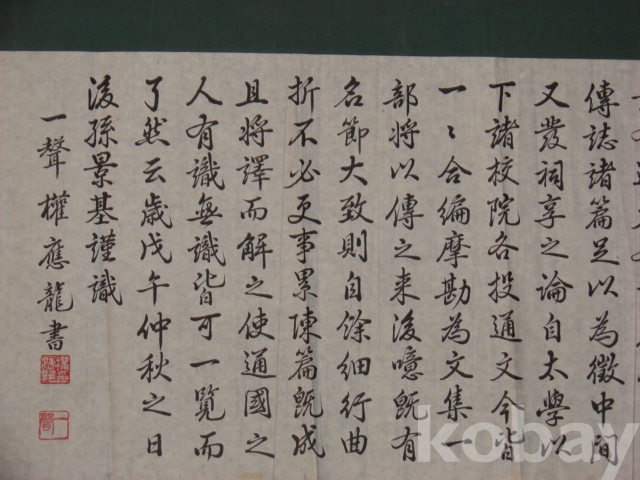 傳誌諸篇足以為徵中間
又發祠享之論自太學以
下諸校院各投通文今皆
一〻合編摩勘為文集一
部將以傳之来後噫旣有
名節大致則自餘細行曲
折不必更事累陳篇旣成
且將譯而解之使通國之
人有識無識皆可一覧而
了然云歲戊午仲秋之日
後孫景基謹識
一聲權應龍書
kobay